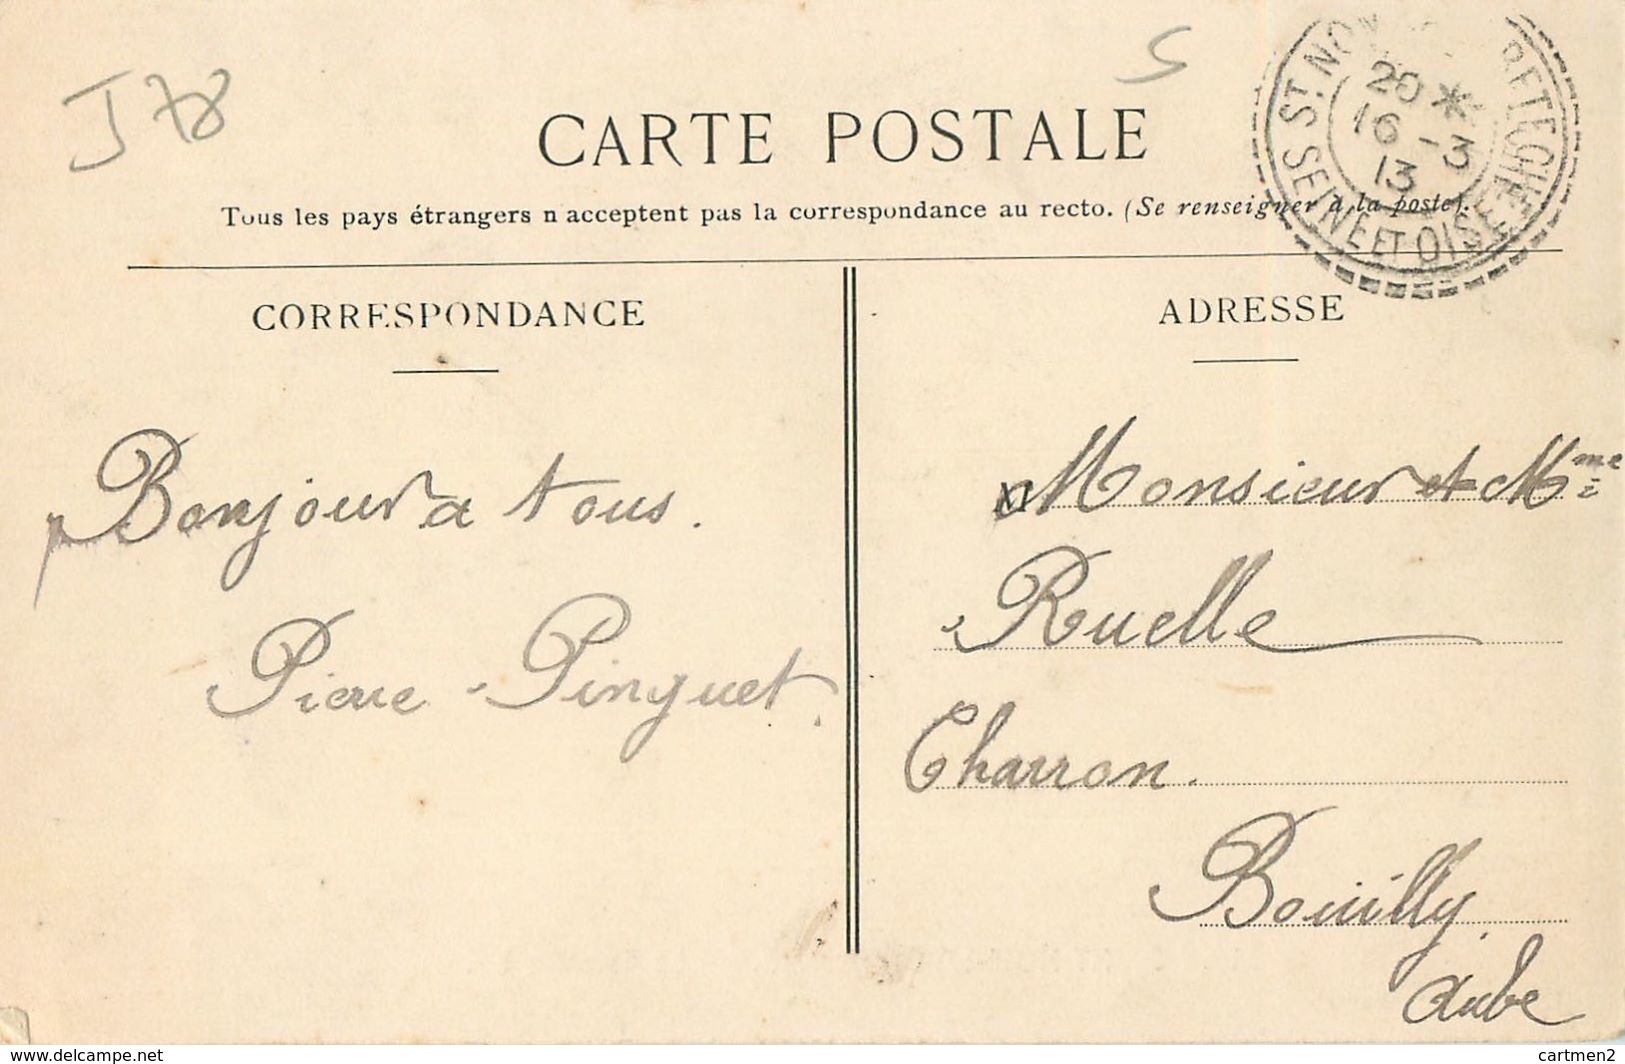 J 78
S
CARTE POSTALE
Tous les pays étrangers n acceptent pas la correspondance au recto. (Se renseigner à la poste).
ST. NOM BRETECHE
20 *
16 - 3
13
SEINE ET OISE
CORRESPONDANCE
Bonjour a tous.
Pierre Pinguet.
ADRESSE
Monsieur et Mme
Ruelle
Charron.
Bouilly
Aube
www.delcampe.net
cartmen2